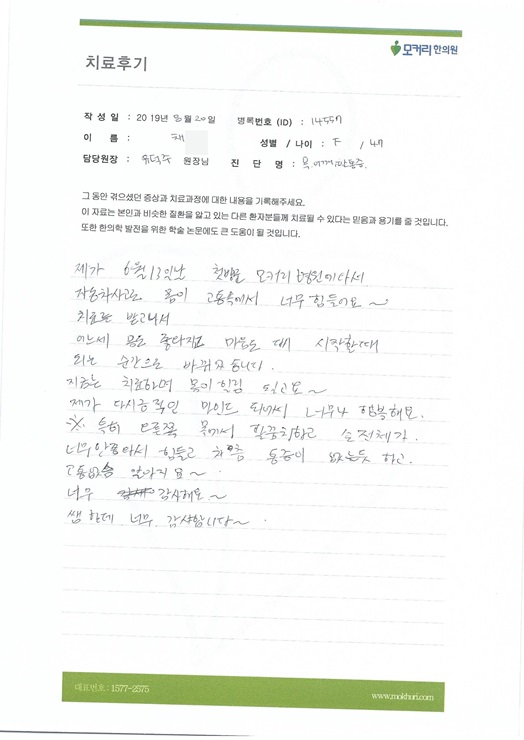 모커리한의원
치료후기
작 성 일 : 2019년 8월 20일 병록번호 (ID) : 14557
이 름 : 채
성별 / 나이 : F / 47
담당원장 : 유덕주 원장님 진 단 명 : 목.어깨.만통증.
그 동안 겪으셨던 증상과 치료과정에 대한 내용을 기록해주세요.
이 자료는 본인과 비슷한 질환을 앓고 있는 다른 환자분들께 치료될 수 있다는 믿음과 용기를 줄 것입니다.
또한 한의학 발전을 위한 학술 논문에도 큰 도움이 될 것입니다.
제가 6월 13일날 첫발로 모커리 병원에 다서
자동차사고로 몸이 고통속에서 너무 힘들어요~
치료를 받고나서
어느세 몸도 좋다지고 마음도 시작할때
되는 순간으로 바뀌 습니다.
지금는 치료하며 몸이
제가 다시금 적인 마인드 되어서 너무나 행복해요.
※ 특히 오른쪽 목에서 팔꿈치하고 손전체가
너무 안 힘들고 지금 통증이 없는듯 하고.
고통없슴 요~
너무 감사해요~
쌤 한테 너무 감사합니다~.
대표번호 : 1577-2575
www.mokhuri.com